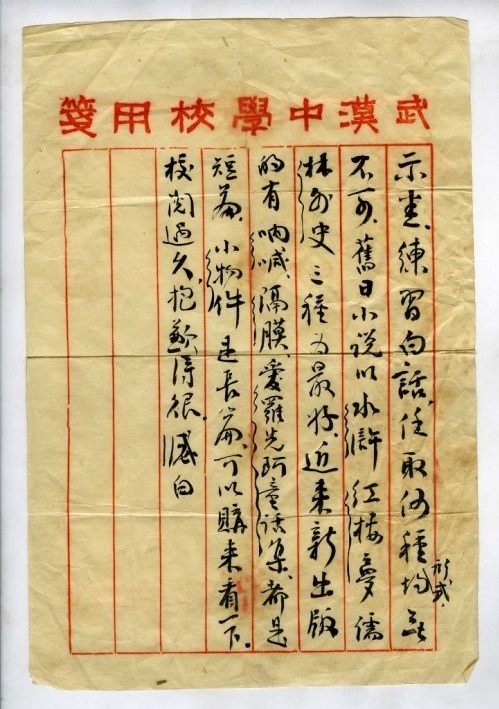 武漢中學校用箋
示悉、練習白話、任取何種形式、均無
不可、舊日小說以水滸 紅樓夢 儒
林外史 三種為最好、近來新出版
的有 吶喊、隔膜、愛羅先珂童話集、都是
短篇、小物件 是長篇、可以購來看一下。
校閱過久、抱歉得很。白